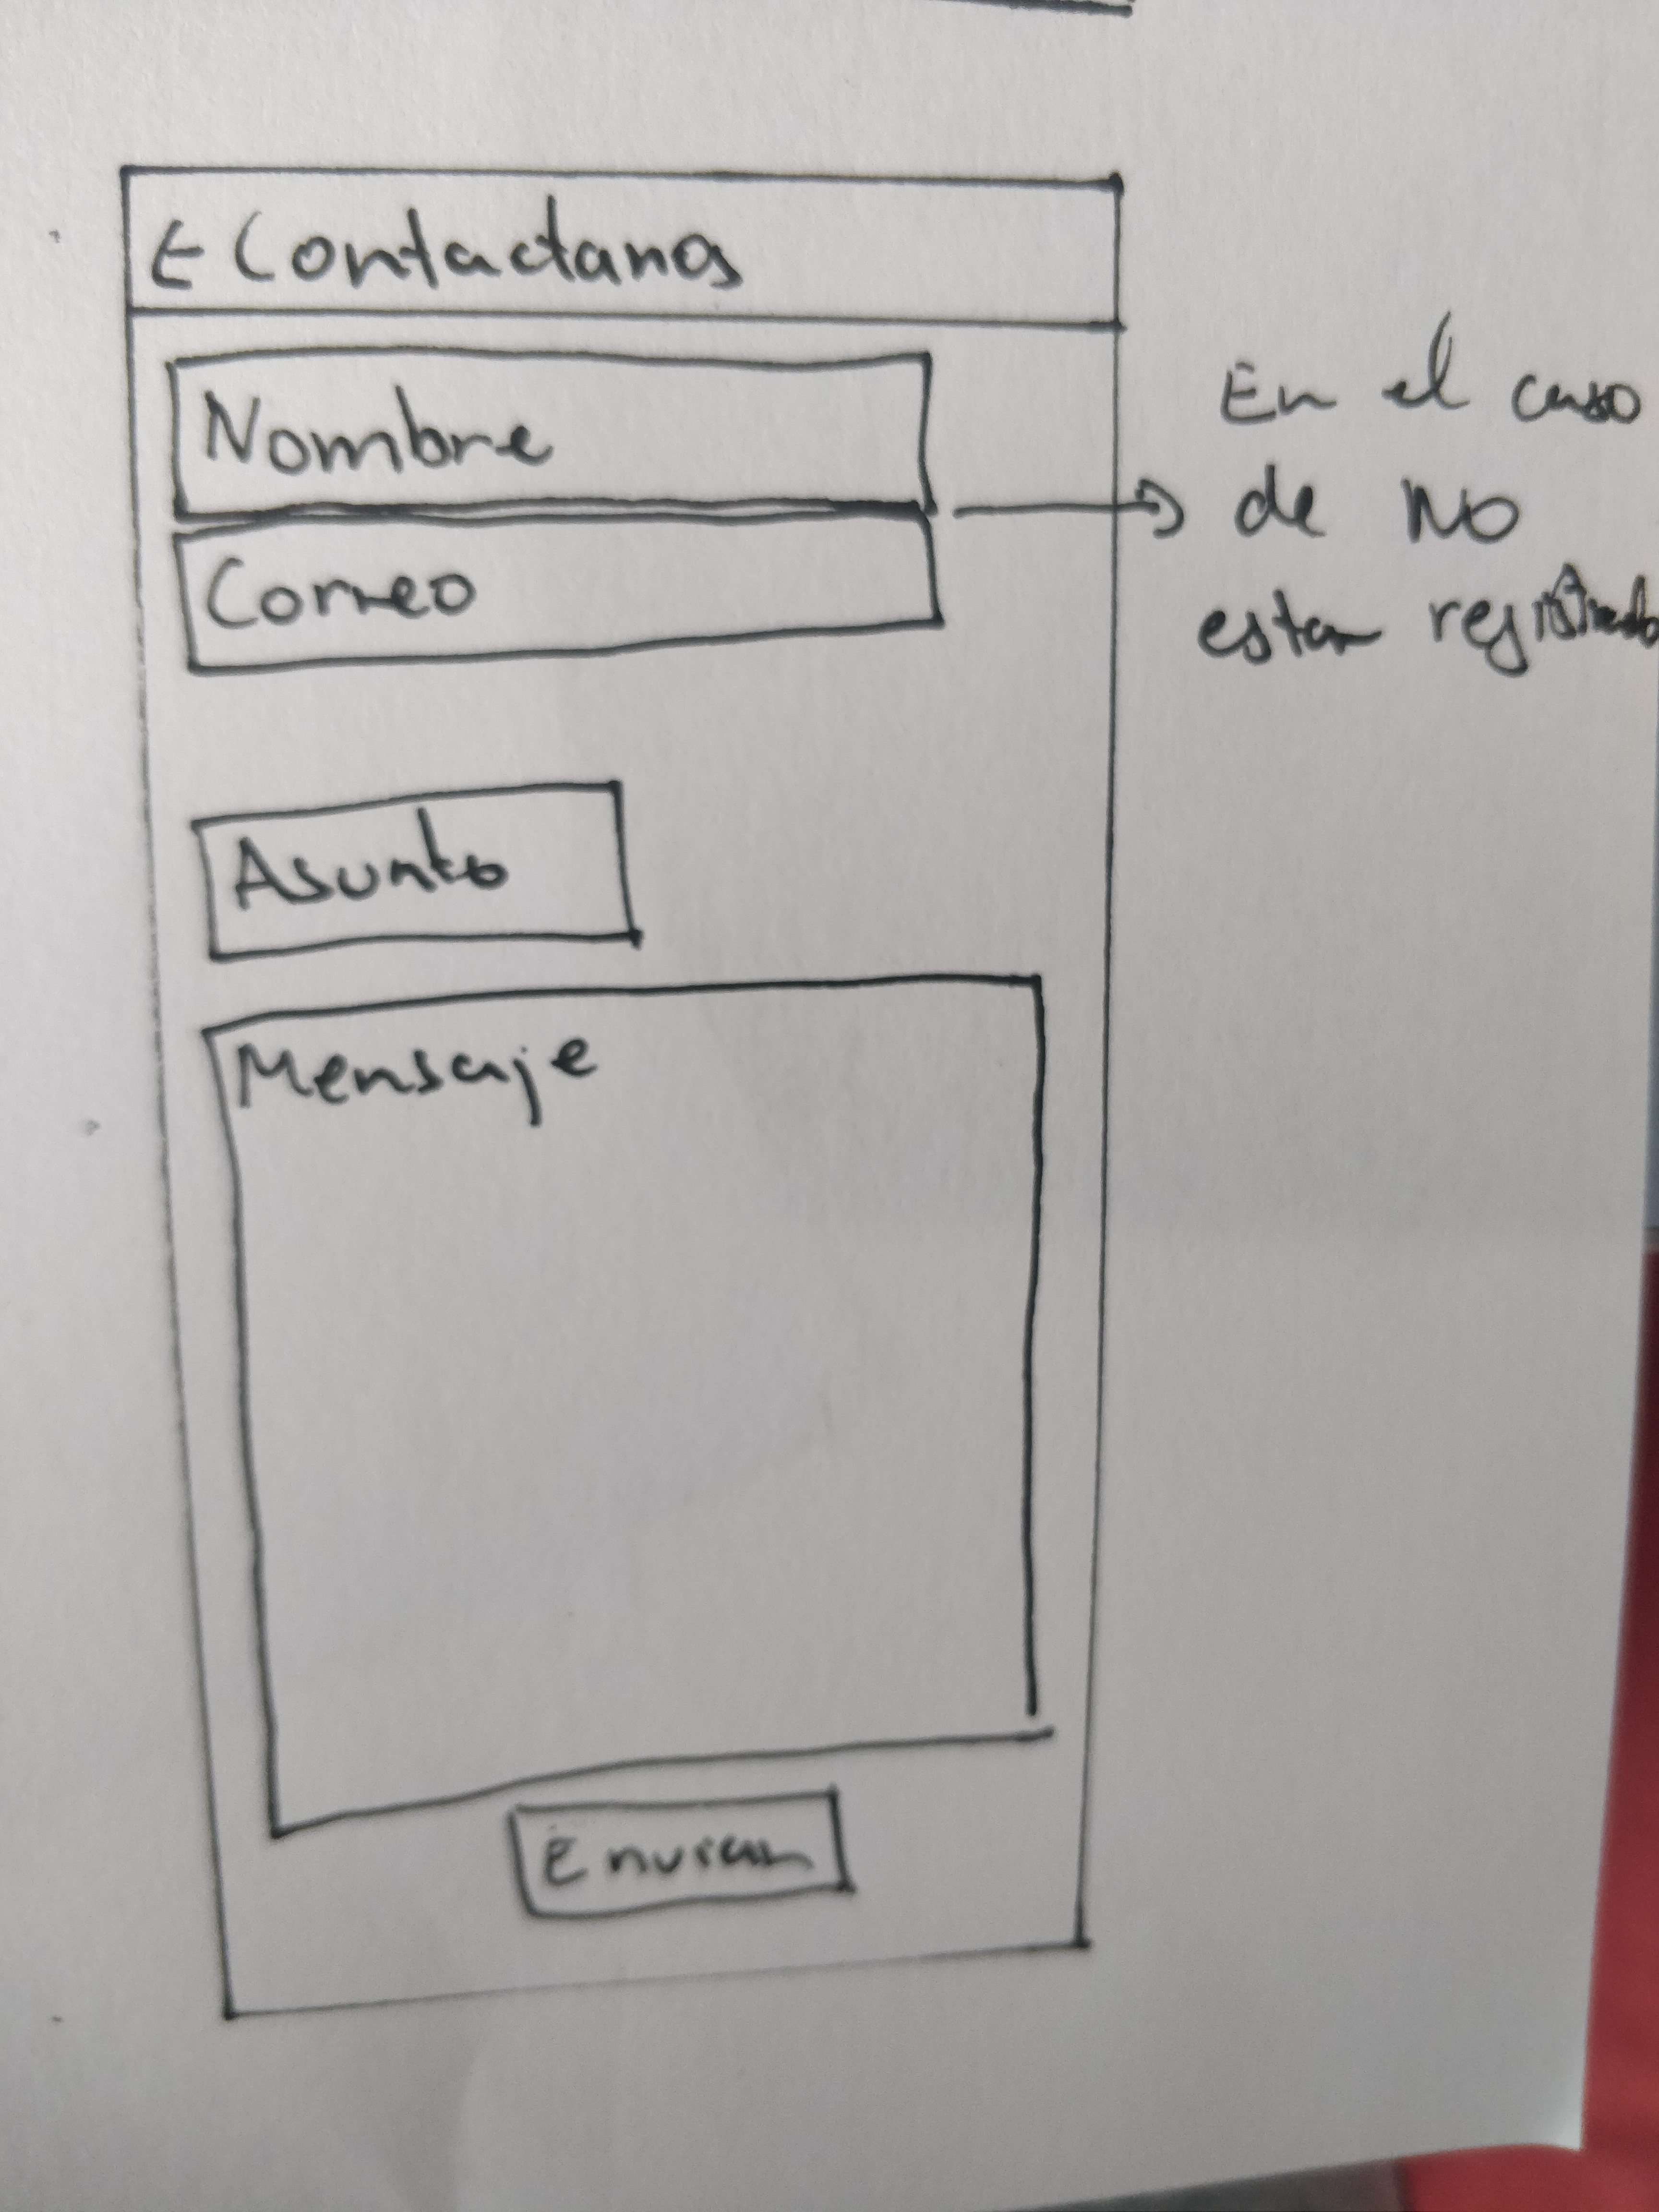 ← Contactanos
Nombre
En el caso
de NO
estar registrado
Correo
Asunto
Mensaje
Enviar